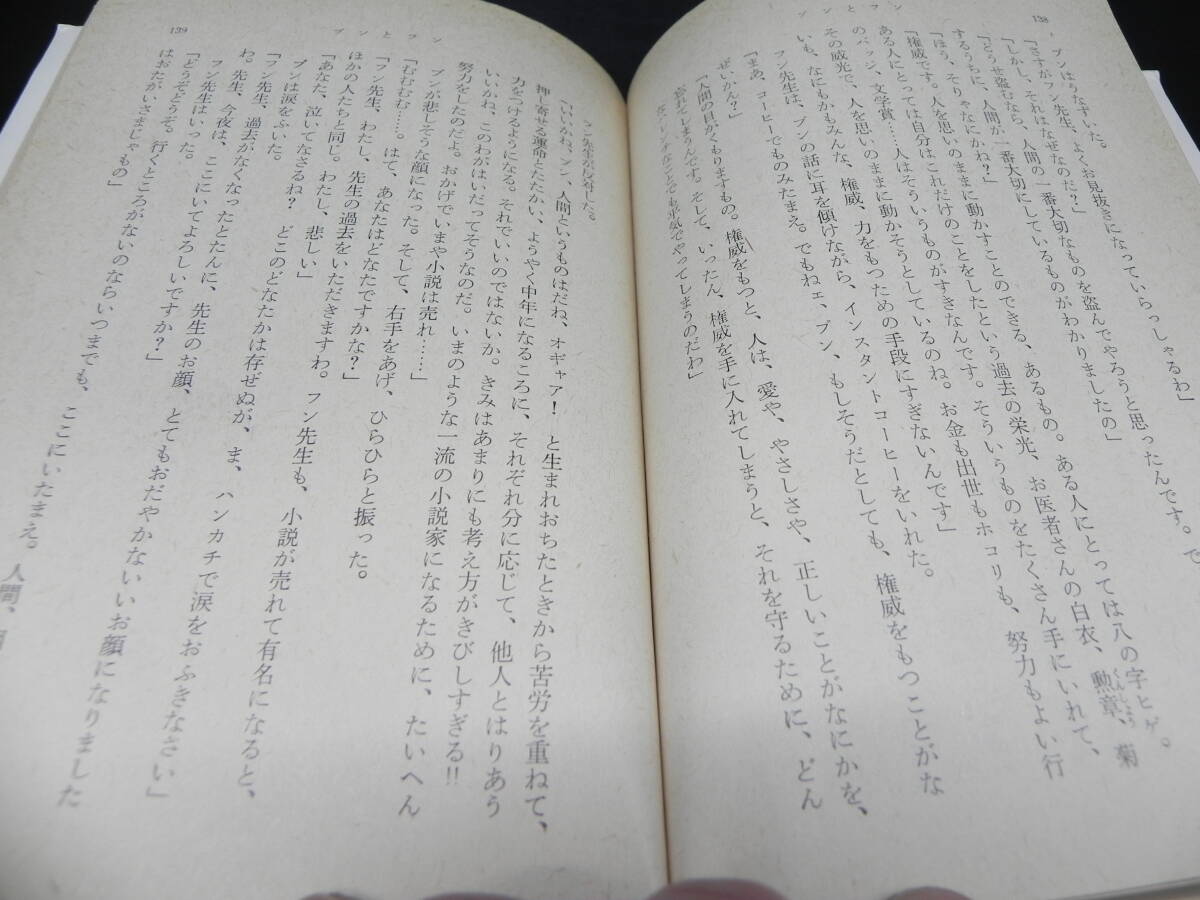 138
ブンとフン
ブンはうなずいた。
「さすがフン先生、よくお見抜きになっていらっしゃるわ」
「しかし、それはなぜなのだ？」
「どうせ盗むなら、人間の一番大切なものを盗んでやろうと思ったんです。で、
するうちに、人間が一番大切にしているものがわかりましたの」
「ほう、そりゃなにかね？」
「権威です。人を思いのままに動かすことのできる、あるもの。ある人にとっては八の字ヒゲ。
ある人にとっては自分はこれだけのことをしたという過去の栄光、お医者さんの白衣、勲章、菊
くんしょう
のバッジ、文学賞……人はそういうものがすきなんです。そういうものをたくさん手にいれて、
その威光で、人を思いのままに動かそうとしているのね。お金も出世もホコリも、努力もよい行
いも、なにもかもみんな、権威、力をもつための手段にすぎないんです」
フン先生は、ブンの話に耳を傾けながら、インスタントコーヒーをいれた。
「まあ、コーヒーでものみたまえ。でもねェ、ブン、もしそうだとしても、権威をもつことがな
ぜいかん？」
「人間の目がくもりますもの。権威をもつと、人は、愛や、やさしさや、正しいことがなにかを、
忘れてしまうんです。そして、いったん、権威を手に入れてしまうと、それを守るために、どん
なことでも平気でやってしまうのだわ」
139
ブンとフン
フン先生は反対した。
「いいかね、ブン、人間というものはだね、オギャア！　と生まれおちたときから苦労を重ねて、
押し寄せる運命とたたかい、ようやく中年になるころに、それぞれ分に応じて、他人とはりあう
力をつけるようになる。それでいいのではないか。きみはあまりにも考え方がきびしすぎる!!
いいかね、このわがはいだってそうなのだ。いまのような一流の小説家になるために、たいへん
努力をしたのだよ。おかげでいまや小説は売れ……」
ブンが悲しそうな顔になった。そして、右手をあげ、ひらひらと振った。
「むむむむ……。はて、あなたはどなたですかな？」
「フン先生、わたし、先生の過去をいただきますわ。フン先生も、小説が売れて有名になると、
ほかの人たちと同じ。わたし、悲しい」
「あなた、泣いてなさるね？　どこのどなたかは存ぜぬが、ま、ハンカチで涙をおふきなさい」
ブンは涙をふいた。
「フン先生、過去がなくなったとたんに、先生のお顔、とてもおだやかないいお顔になりました
わ。先生、今夜は、ここにいてよろしいですか？」
フン先生はいった。
「どうぞどうぞ。行くところがないのならいつまでも、ここにいたまえ。人間、
はおたがいさまじゃもの」